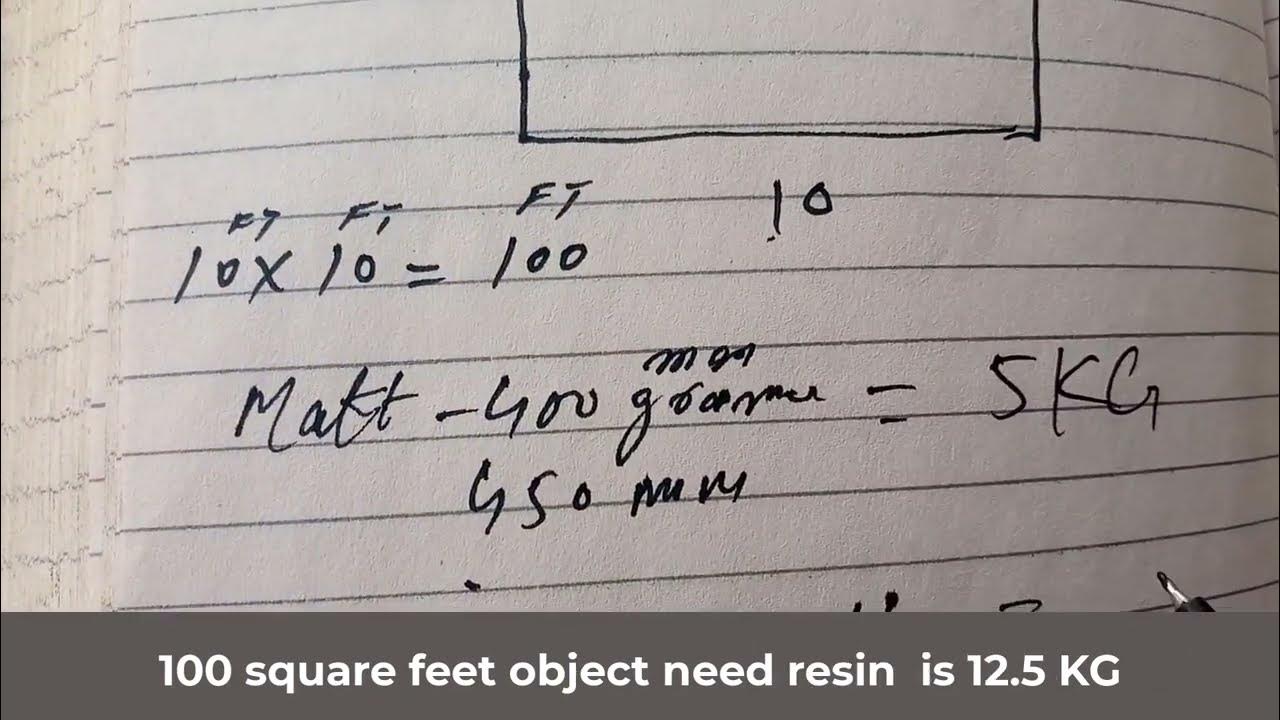 FT FT FT
10 X 10 = 100
10
Matt - 400 = 5KG
450 mm
100 square feet object need resin is 12.5 KG